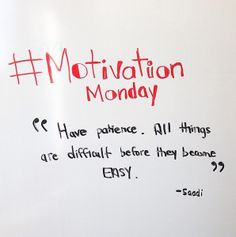 #Motivation
Monday
"Have patience. All things
are difficult before they become
EASY."
-Saadi